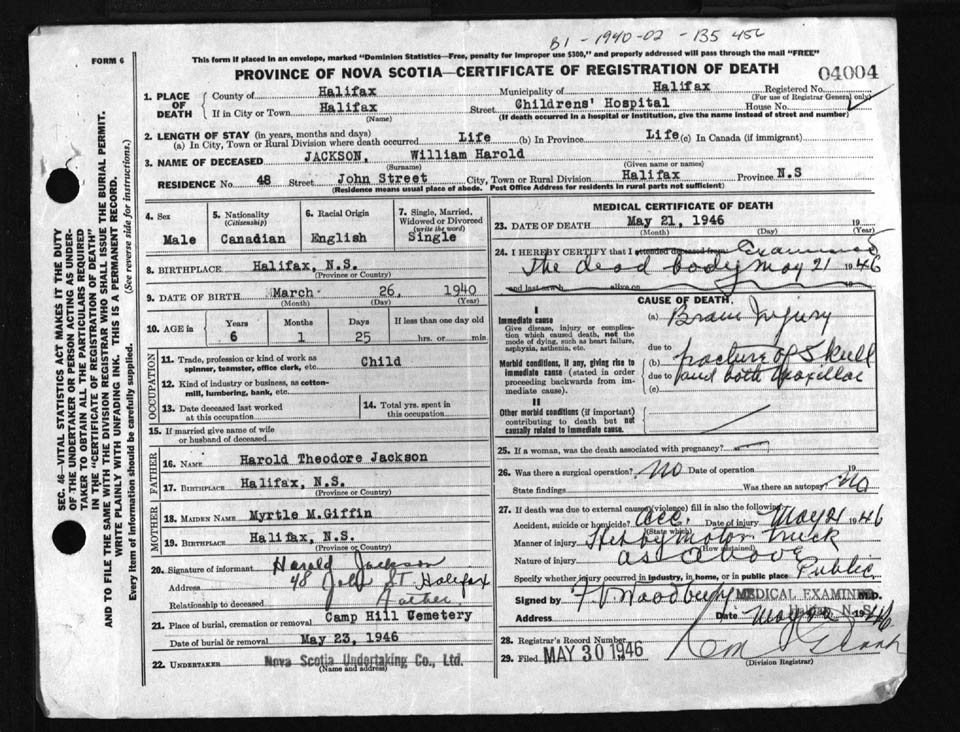 B1 - 1940-02 - 135 456
FORM 6
This form if placed in an envelope, marked "Dominion Statistics—Free, penalty for improper use $300," and properly addressed will pass through the mail "FREE"
PROVINCE OF NOVA SCOTIA—CERTIFICATE OF REGISTRATION OF DEATH
04004
1. PLACE OF DEATH
County of Halifax Municipality of Halifax Registered No.
(For use of Registrar General only)
If in City or Town Halifax Street Childrens' Hospital House No.
(Name) (If death occurred in a hospital or institution, give the name instead of street and number)
2. LENGTH OF STAY (in years, months and days)
(a) In City, Town or Rural Division where death occurred Life (b) In Province Life (c) In Canada (if immigrant)
3. NAME OF DECEASED JACKSON, William Harold
(Surname) (Given name or names)
RESIDENCE No. 48 Street John Street City, Town or Rural Division Halifax Province N.S
(Residence means usual place of abode. Post Office Address for residents in rural parts not sufficient)
4. Sex Male
5. Nationality (Citizenship) Canadian
6. Racial Origin English
7. Single, Married, Widowed or Divorced (write the word) Single
8. BIRTHPLACE Halifax, N.S.
(Province or Country)
9. DATE OF BIRTH March 26, 1940
(Month) (Day) (Year)
10. AGE in Years Months Days If less than one day old
6 1 25 hrs. or min.
OCCUPATION
11. Trade, profession or kind of work as spinner, teamster, office clerk, etc. Child
12. Kind of industry or business, as cotton-mill, lumbering, bank, etc.
13. Date deceased last worked at this occupation
14. Total yrs. spent in this occupation
15. If married give name of wife or husband of deceased
FATHER
16. NAME Harold Theodore Jackson
17. BIRTHPLACE Halifax, N.S.
(Province or Country)
MOTHER
18. MAIDEN NAME Myrtle M.Giffin
19. BIRTHPLACE Halifax, N.S.
(Province or Country)
20. Signature of informant Harold Jackson
Address 48 John St Halifax
Relationship to deceased Father
21. Place of burial, cremation or removal Camp Hill Cemetery
Date of burial or removal May 23, 1946
22. UNDERTAKER Nova Scotia Undertaking Co., Ltd.
(Name and address)
MEDICAL CERTIFICATE OF DEATH
23. DATE OF DEATH May 21, 1946 19
(Month) (Day) (Year)
24. I HEREBY CERTIFY that I attended deceased from Examined
the dead body May 21 1946
and last saw h alive on 19
CAUSE OF DEATH
I
Immediate cause
Give disease, injury or complication which caused death, not the mode of dying, such as heart failure, asphyxia, asthenia, etc.
(a) Brain Injury
due to
Morbid conditions, if any, giving rise to immediate cause (stated in order proceeding backwards from immediate cause).
(b) fracture of Skull
due to and both maxillae
(c)
II
Other morbid conditions (if important) contributing to death but not causally related to immediate cause.
25. If a woman, was the death associated with pregnancy?
26. Was there a surgical operation? No Date of operation 19
State findings Was there an autopsy? No
27. If death was due to external causes (violence) fill in also the following:
Accident, suicide or homicide? Acc. Date of injury May 21 1946
(State which)
Manner of injury Hit by motor truck
(How sustained)
Nature of injury as above
Specify whether injury occurred in industry, in home, or in public place Public
Signed by MEDICAL EXAMINER M.D.
Address Halifax N.S. Date May 1946
28. Registrar's Record Number
29. Filed MAY 30 1946
(Division Registrar)
SEC. 46—VITAL STATISTICS ACT MAKES IT THE DUTY OF THE UNDERTAKER OR PERSON ACTING AS UNDERTAKER TO OBTAIN ALL THE PARTICULARS REQUIRED IN THE "CERTIFICATE OF REGISTRATION OF DEATH" AND TO FILE THE SAME WITH THE DIVISION REGISTRAR WHO SHALL ISSUE THE BURIAL PERMIT.
WRITE PLAINLY WITH UNFADING INK. THIS IS A PERMANENT RECORD.
Every item of information should be carefully supplied. (See reverse side for instructions.)